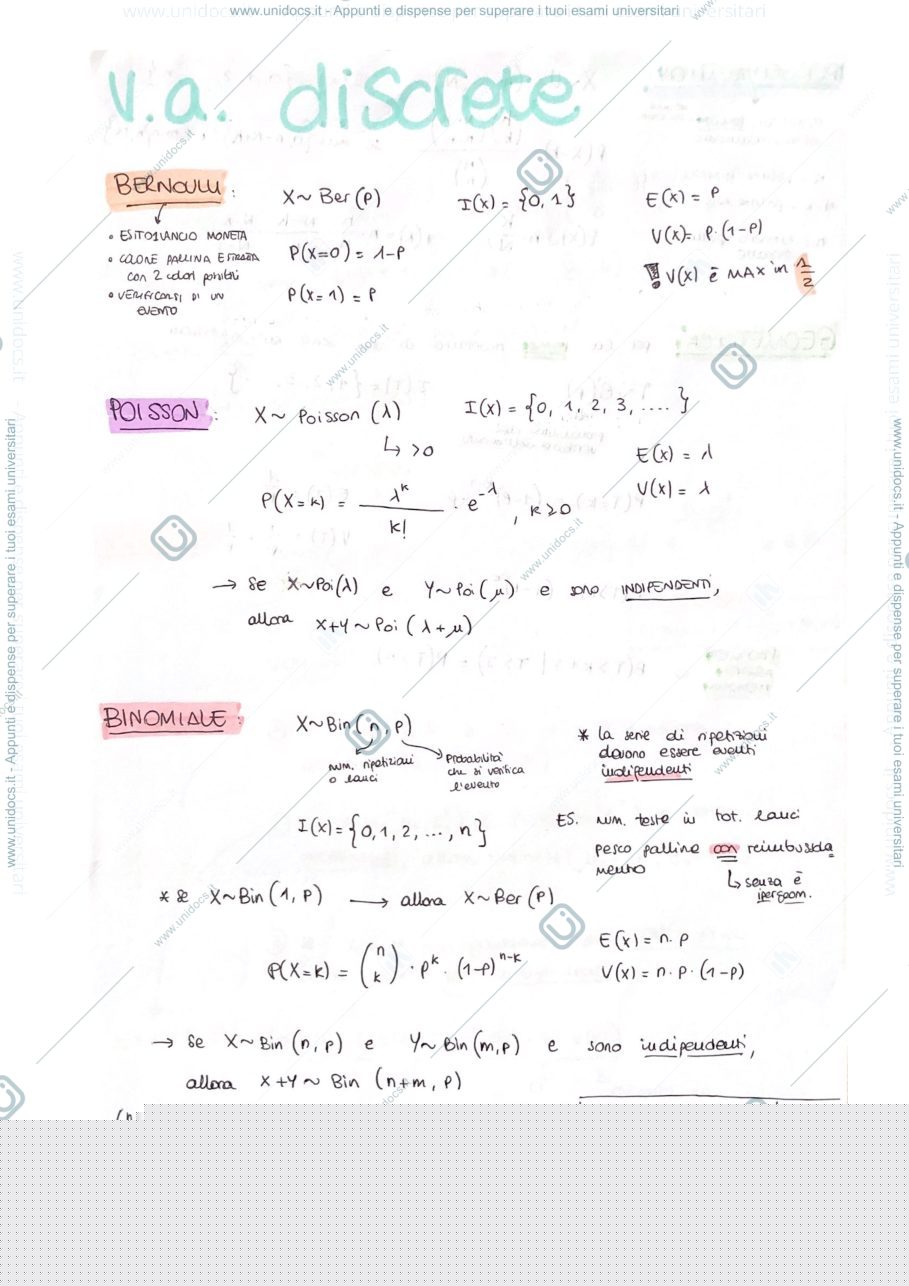 www.unidocs.it - Appunti e dispense per superare i tuoi esami universitari
v.a. discrete
BERNOULLI :
X ~ Ber (p)
I(x) = {0, 1}
E(x) = p
• ESITO LANCIO MONETA
• COLORE PALLINA ESTRATTA
con 2 colori possibili
• VERIFICARSI DI UN
EVENTO
P(X=0) = 1-p
P(X=1) = p
V(x) = p · (1-p)
! V(x) è MAX in 1/2
POISSON :
X ~ Poisson (λ)
↳ >0
I(x) = {0, 1, 2, 3, .... }
E(x) = λ
V(x) = λ
P(X=k) = λ^k / k! · e^-λ , k ≥ 0
→ Se X~Poi(λ) e Y~Poi(μ) e sono INDIPENDENTI,
allora X+Y ~ Poi (λ+μ)
BINOMIALE :
X~Bin(n, p)
num. ripetizioni
o lanci
Probabilità
che si verifica
l'evento
* la serie di ripetizioni
devono essere eventi
indipendenti
I(x) = {0, 1, 2, ..., n}
ES. num. teste in tot. lanci
pesco palline con reimbussola
mento
↳ senza è
ipergeom.
* se X~Bin (1, p) → allora X~Ber (p)
P(X=k) = (n k) · p^k · (1-p)^n-k
E(x) = n · p
V(x) = n · p · (1-p)
→ Se X~Bin (n, p) e Y~Bin (m,p) e sono indipendenti,
allora X+Y ~ Bin (n+m, p)
www.unidocs.it - Appunti e dispense per superare i tuoi esami universitari
www.unidocs.it - Appunti e dispense per superare i tuoi esami universitari